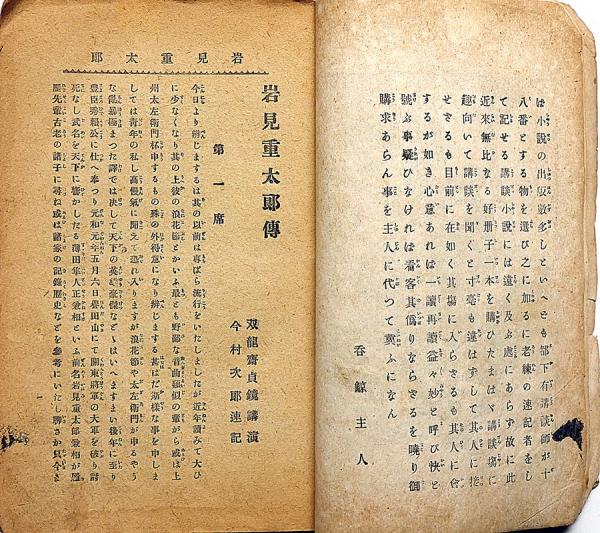 は小説の出版数多しといへども都下有名講談師が十
八番とする物を選び之に加るに老練の速記者をし
て記せる講談小説には遠く及ぶ處にあらず故に此
近來無比なる好冊子一本を購ひたまはゞ講談塲に
趣向いて講談を聞くと寸毫も違はずして其人に接
せざるも目前に在如く其塲に入らざるも其人に會
するが如き心意あれば一讀再讀益々妙と呼び快と
號ぶ事疑ひなければ看客其僞りならざるを曉り御
購求あらん事を主人に代つて冀ふになん
呑鯨主人
岩見重太郎
岩見重太郎傳
双龍齋貞鏡講演
今村次郎速記
第一席
今日より辨じまするは其の以前は專ぱら流行をいたしましたが近年讀みて大ひ
に少なくなり其の上彼の浪花節とかいふ最とも野鄙な音曲類似の輩がら或は上
州太左衛門杯申するもの殊の外得意になり辨じまする甚はだ斯樣な事を申しま
しては青年の私し高慢氣に聞えて恐れ入りますが浪花節や太左衛門が申るやう
な亂暴極まつた譯では決して天下の英雄豪傑などゝはいへますまい後年に至り
豊臣秀頼公に仕へ奉つり元和元年五月六日譽田山にて關東將軍の大軍を破り討
死なし武名を天下に響かしたる薄田隼人正兼相といふ前名岩見重太郎兼相が歷
先輩古老の諸子に尋ね或は諸家の記錄歷史などを參考にいたし聊さか只今さ